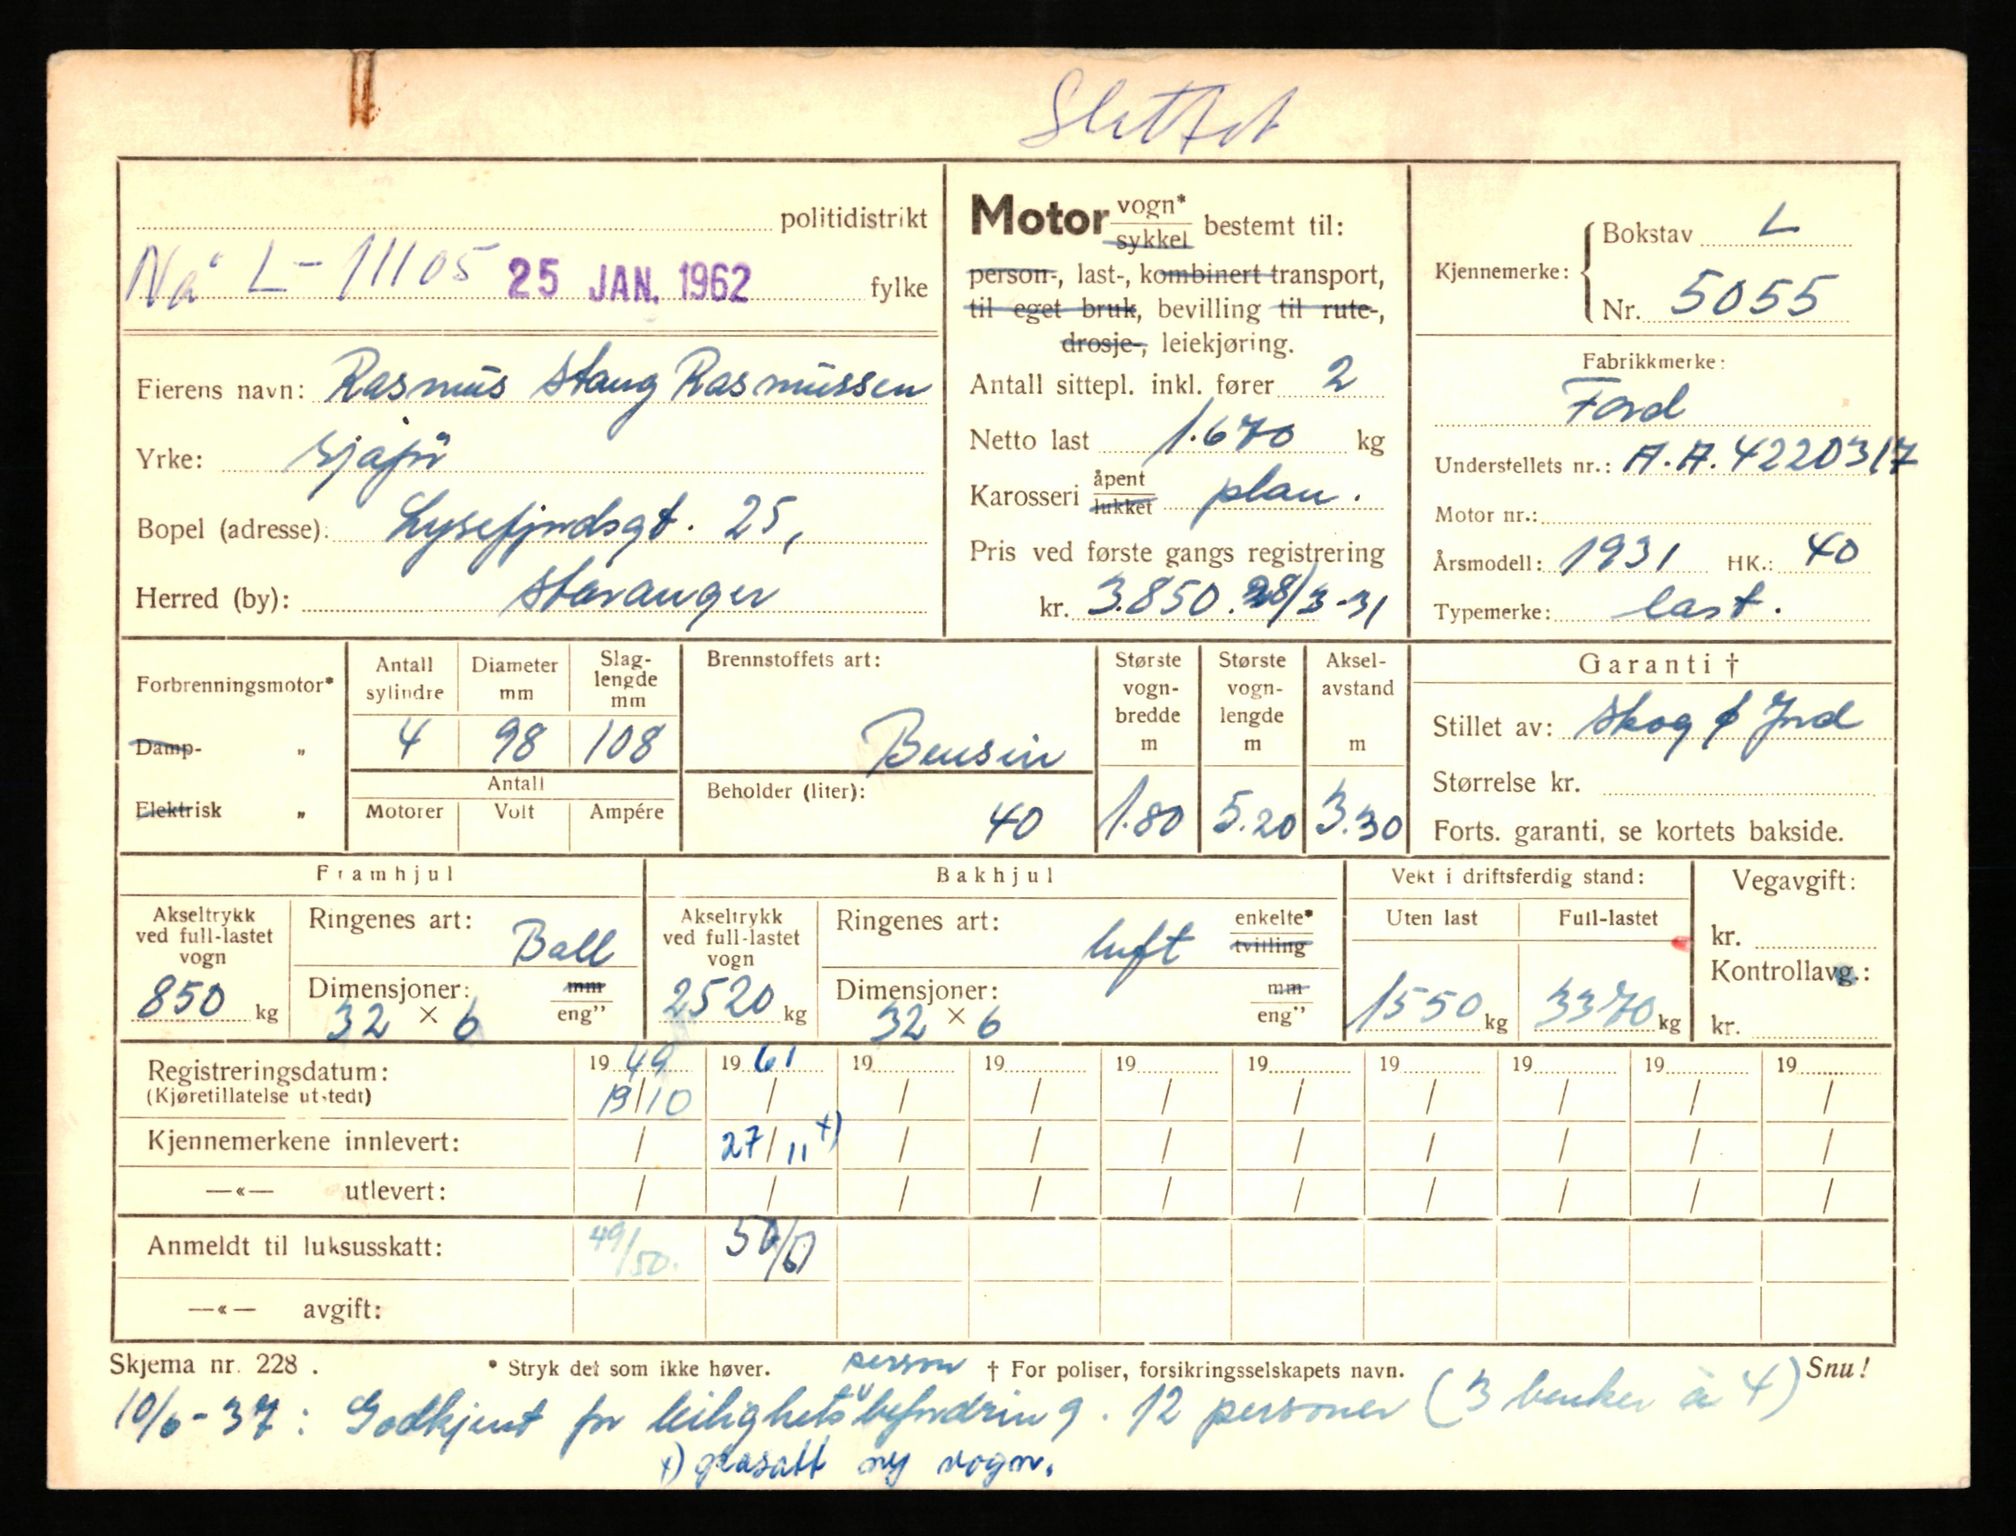 Slettet
politidistrikt
Nå L-11105 25 JAN. 1962 fylke
Eierens navn: Rasmus Stang Rasmussen
Yrke: sjåfør
Bopel (adresse): Lysefjordsgt. 25,
Herred (by): Stavanger
Motor vogn* sykkel bestemt til:
person-, last-, kombinert transport,
til eget bruk, bevilling til rute-,
drosje-, leiekjøring.
Antall sittepl. inkl. fører 2
Netto last 1.670 kg
Karosseri åpent lukket plan.
Pris ved første gangs registrering
kr. 3.850. 28/3-31
Kjennemerke: Bokstav L
Nr. 5055
Fabrikkmerke:
Ford
Understellets nr.: A.A. 4220317
Motor nr.:
Årsmodell: 1931 HK.: 40
Typemerke: last.
Forbrenningsmotor*
Damp- „
Elektrisk „
Antall sylindre Diameter mm Slaglengde mm
4 98 108
Antall
Motorer Volt Ampére
Brennstoffets art:
Bensin
Beholder (liter):
40
Største vognbredde m Største vognlengde m Akselavstand m
1.80 5.20 3.30
Garanti †
Stillet av: Skog & Jord
Størrelse kr.
Forts. garanti, se kortets bakside.
Framhjul
Akseltrykk ved full-lastet vogn
850 kg
Ringenes art: Ball
Dimensjoner: mm
32 × 6 eng"
Bakhjul
Akseltrykk ved full-lastet vogn
2520 kg
Ringenes art: luft enkelte* tvilling
Dimensjoner: mm
32 × 6 eng"
Vekt i driftsferdig stand:
Uten last Full-lastet
1550 kg 3370 kg
Vegavgift:
kr.
Kontrollavg.:
kr.
Registreringsdatum: 19 49 19 61 19 19 19 19 19 19 19 19
(Kjøretillatelse utstedt) 13/10 / / / / / / / / /
Kjennemerkene innlevert: / 27/11 +) / / / / / / / /
—«— utlevert: / / / / / / / / / /
Anmeldt til luksusskatt: 49/50. 50/51
—«— avgift:
Skjema nr. 228. * Stryk det som ikke høver. † For poliser, forsikringsselskapets navn. Snu!
person
10/6-37: Godkjent for leilighetsbefordring. 12 personer (3 benker à 4)
+) erstatt ny vogn.